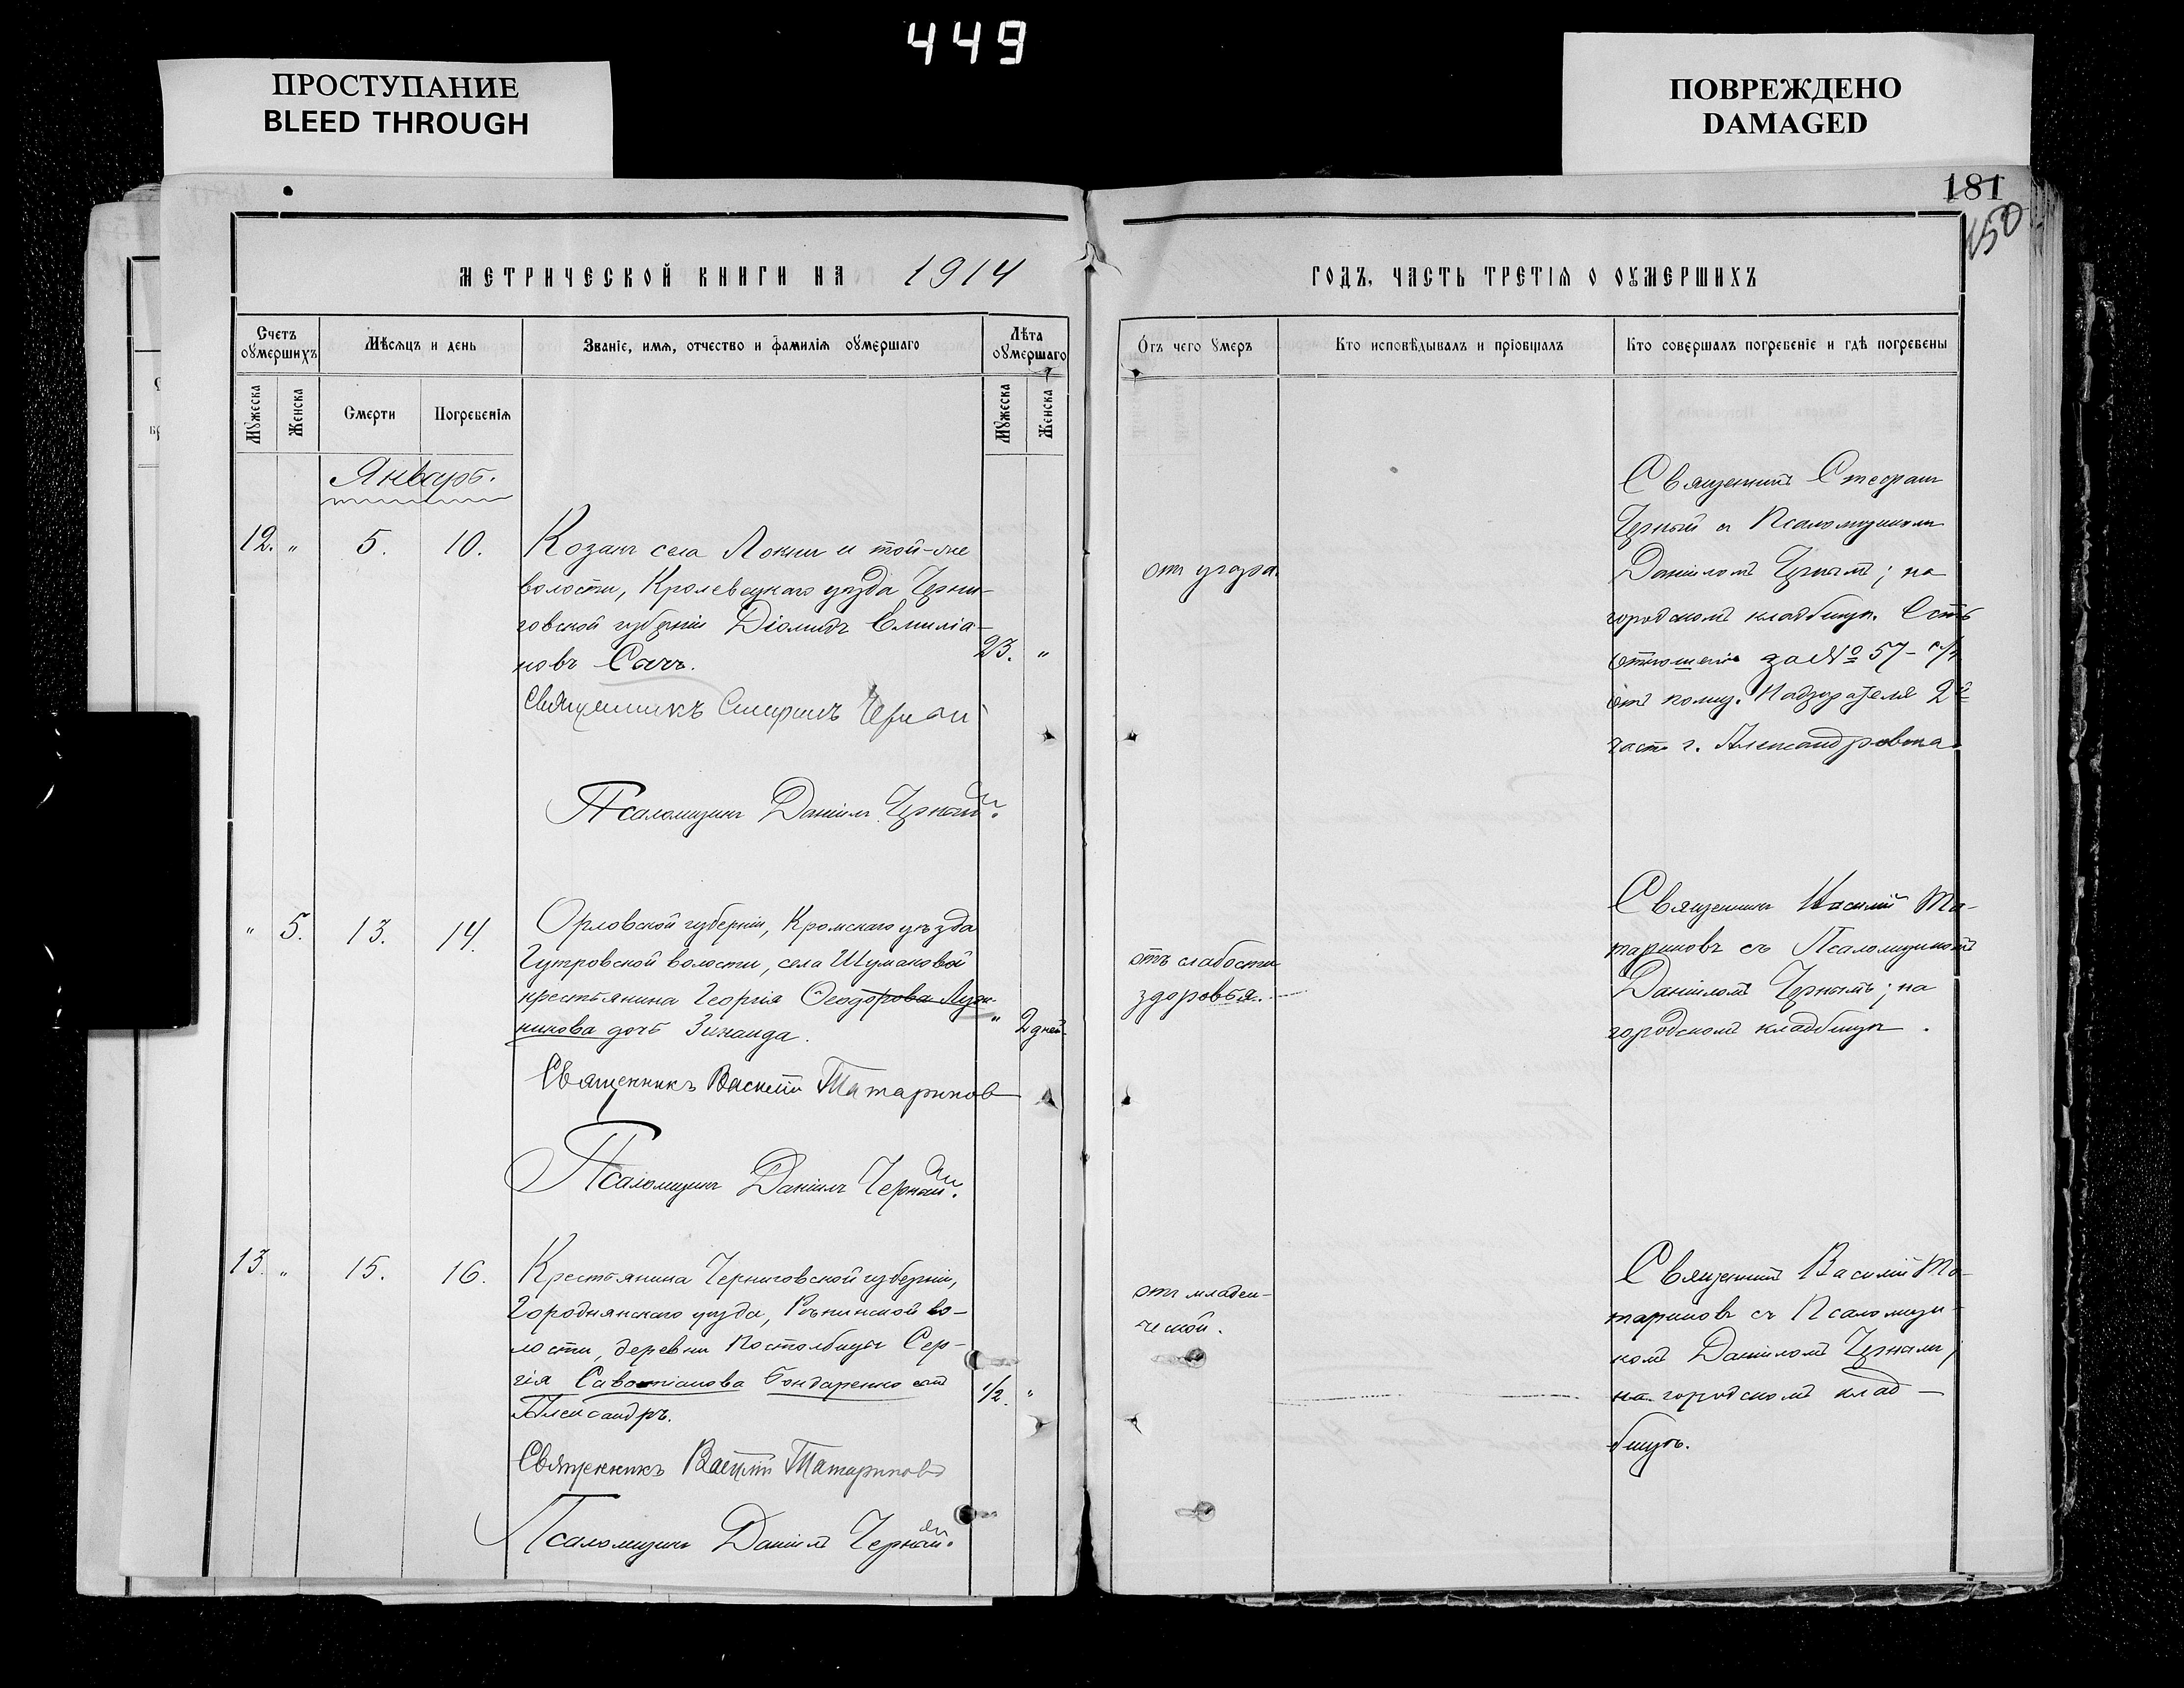 449
ПРОСТУПАНИЕ
BLEED THROUGH
ПОВРЕЖДЕНО
DAMAGED
181
150
МЕТРИЧЕСКОЙ КНИГИ НА 1914
ГОДЪ, ЧАСТЬ ТРЕТІѦ О ОУМЕРШИХЪ
Счетъ оумершихъ
Мѣсяцъ и день
Званіе, имѧ, отчество и фамилїѧ оумершаго
Лѣта оумершаго
Отъ чего умеръ
Кто исповѣдывалъ и пріобщалъ
Кто совершалъ погребеніе и гдѣ погребены
Мужеска
Женска
Смерти
Погребенїѧ
Мужеска
Женска
Январь.
12. " 5. 10.
Козакъ села Локни и той-же
волости, Кролевецкаго уѣзда Черни-
говской губерніи Діомидъ Емиліа-
новъ Сачъ.
23. "
отъ угара.
Священникъ Стефанъ
Черный съ Псаломщикомъ
Даніиломъ Чернымъ; на
городскомъ кладбищѣ. Есть
отношеніе за № 57
отъ полиц. Надзирателя 2й
части г. Александровска
Священникъ Стефанъ Черный
Псаломщикъ Даніилъ Черный.
" 5. 13. 14.
Орловской губерніи, Кромскаго уѣзда
волости, села Шумаковой
крестьянина Георгія Ѳеодорова
никова дочь Зинаида.
" 2 дней
отъ слабости
здоровья.
Священникъ Василій Та-
тариновъ съ Псаломщикомъ
Даніиломъ Чернымъ; на
городскомъ кладбищѣ.
Священникъ Василій Татаринов
Псаломщикъ Даніилъ Черный.
13. " 15. 16.
Крестьянина Черниговской губерніи,
Городнянскаго уѣзда, Рѣпкинской во-
лости, деревни Сер-
гія Бондаренко сынъ
Александръ.
1/2. "
отъ младен-
ческой.
Священникъ Василій Та-
тариновъ съ Псаломщи-
комъ Даніиломъ Чернымъ,
на городскомъ клад-
бищѣ.
Священникъ Василій Татариновъ
Псаломщикъ Даніилъ Черный.